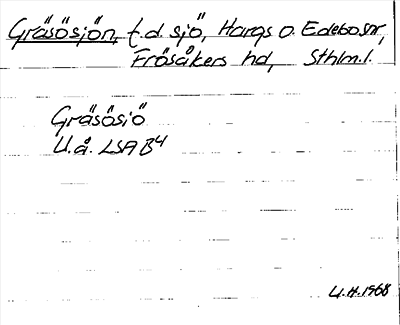 Gräsösjön, f.d. sjö, Hargs o. Edebo snr,
Frösåkers hd, Sthlm.l.
Gräsösiö
U.å. LSA B4
U.H.1968